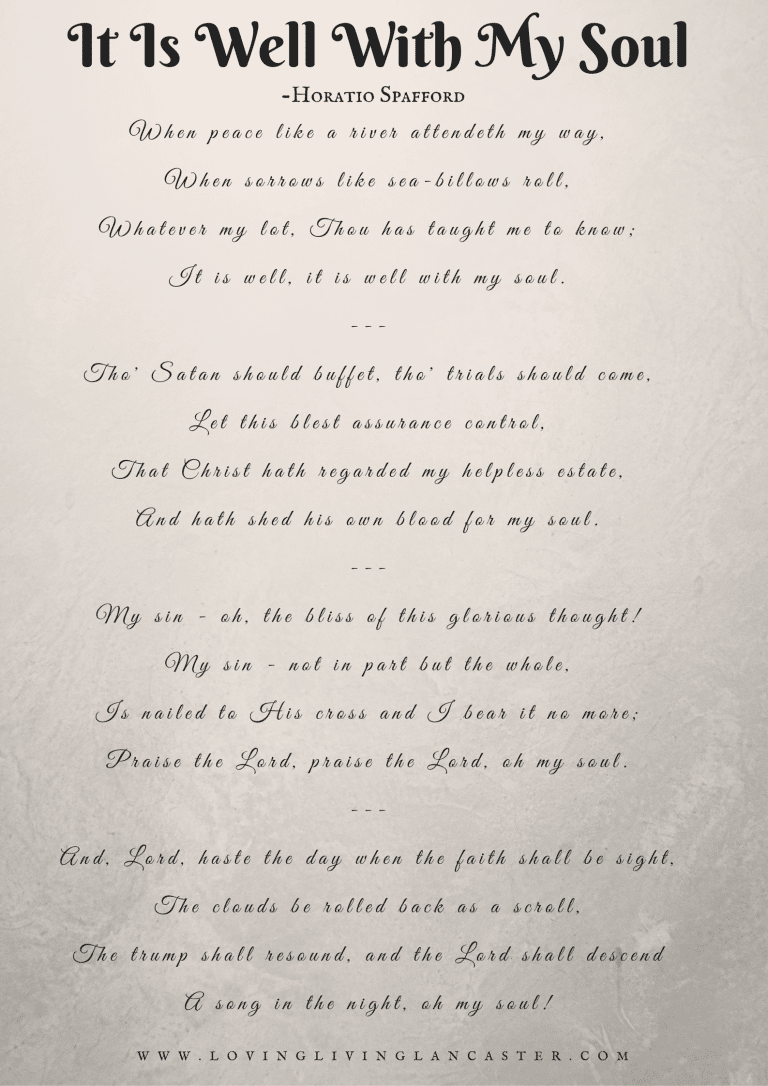 It Is Well With My Soul
-Horatio Spafford
When peace like a river attendeth my way,
When sorrows like sea-billows roll,
Whatever my lot, Thou has taught me to know;
It is well, it is well with my soul.
---
Tho' Satan should buffet, tho' trials should come,
Let this blest assurance control,
That Christ hath regarded my helpless estate,
And hath shed his own blood for my soul.
---
My sin - oh, the bliss of this glorious thought!
My sin - not in part but the whole,
Is nailed to His cross and I bear it no more;
Praise the Lord, praise the Lord, oh my soul.
---
And, Lord, haste the day when the faith shall be sight,
The clouds be rolled back as a scroll,
The trump shall resound, and the Lord shall descend
A song in the night, oh my soul!
WWW.LOVINGLIVINGLANCASTER.COM